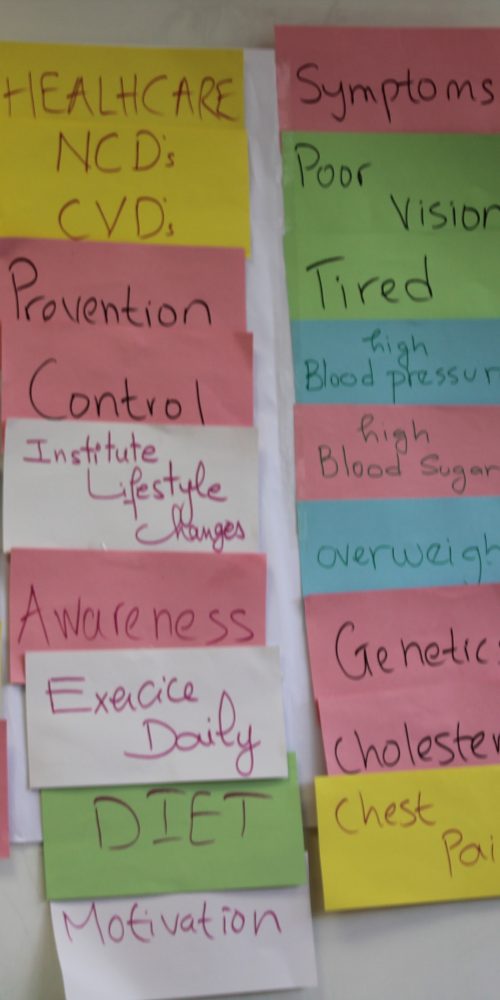 HEALHCARE
NCD's
CVD's
Provention
Control
Institute
Lifestyle
Changes
Awareness
Exercice
Daily
DIET
Motivation
Symptoms
Poor
Vision
Tired
high
Blood pressur
high
Blood Sugar
overweigh
Genetic
Cholester
Chest
Pai